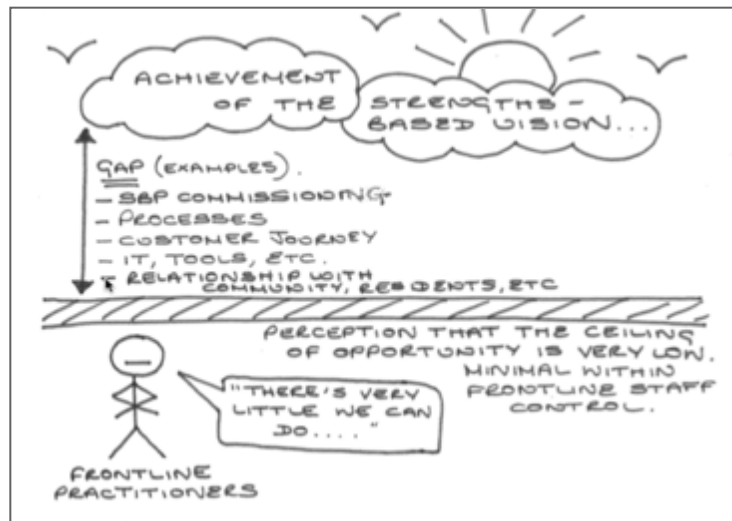 ACHIEVEMENT
OF THE STRENGTHS-
BASED VISION...
GAP (EXAMPLES).
- SBP COMMISSIONING
- PROCESSES
- CUSTOMER JOURNEY
- IT, TOOLS, ETC.
- RELATIONSHIP WITH
COMMUNITY, RESIDENTS, ETC
PERCEPTION THAT THE CEILING
OF OPPORTUNITY IS VERY LOW.
MINIMAL WITHIN
FRONTLINE STAFF
CONTROL.
"THERE'S VERY
LITTLE WE CAN
DO...."
FRONTLINE
PRACTITIONERS